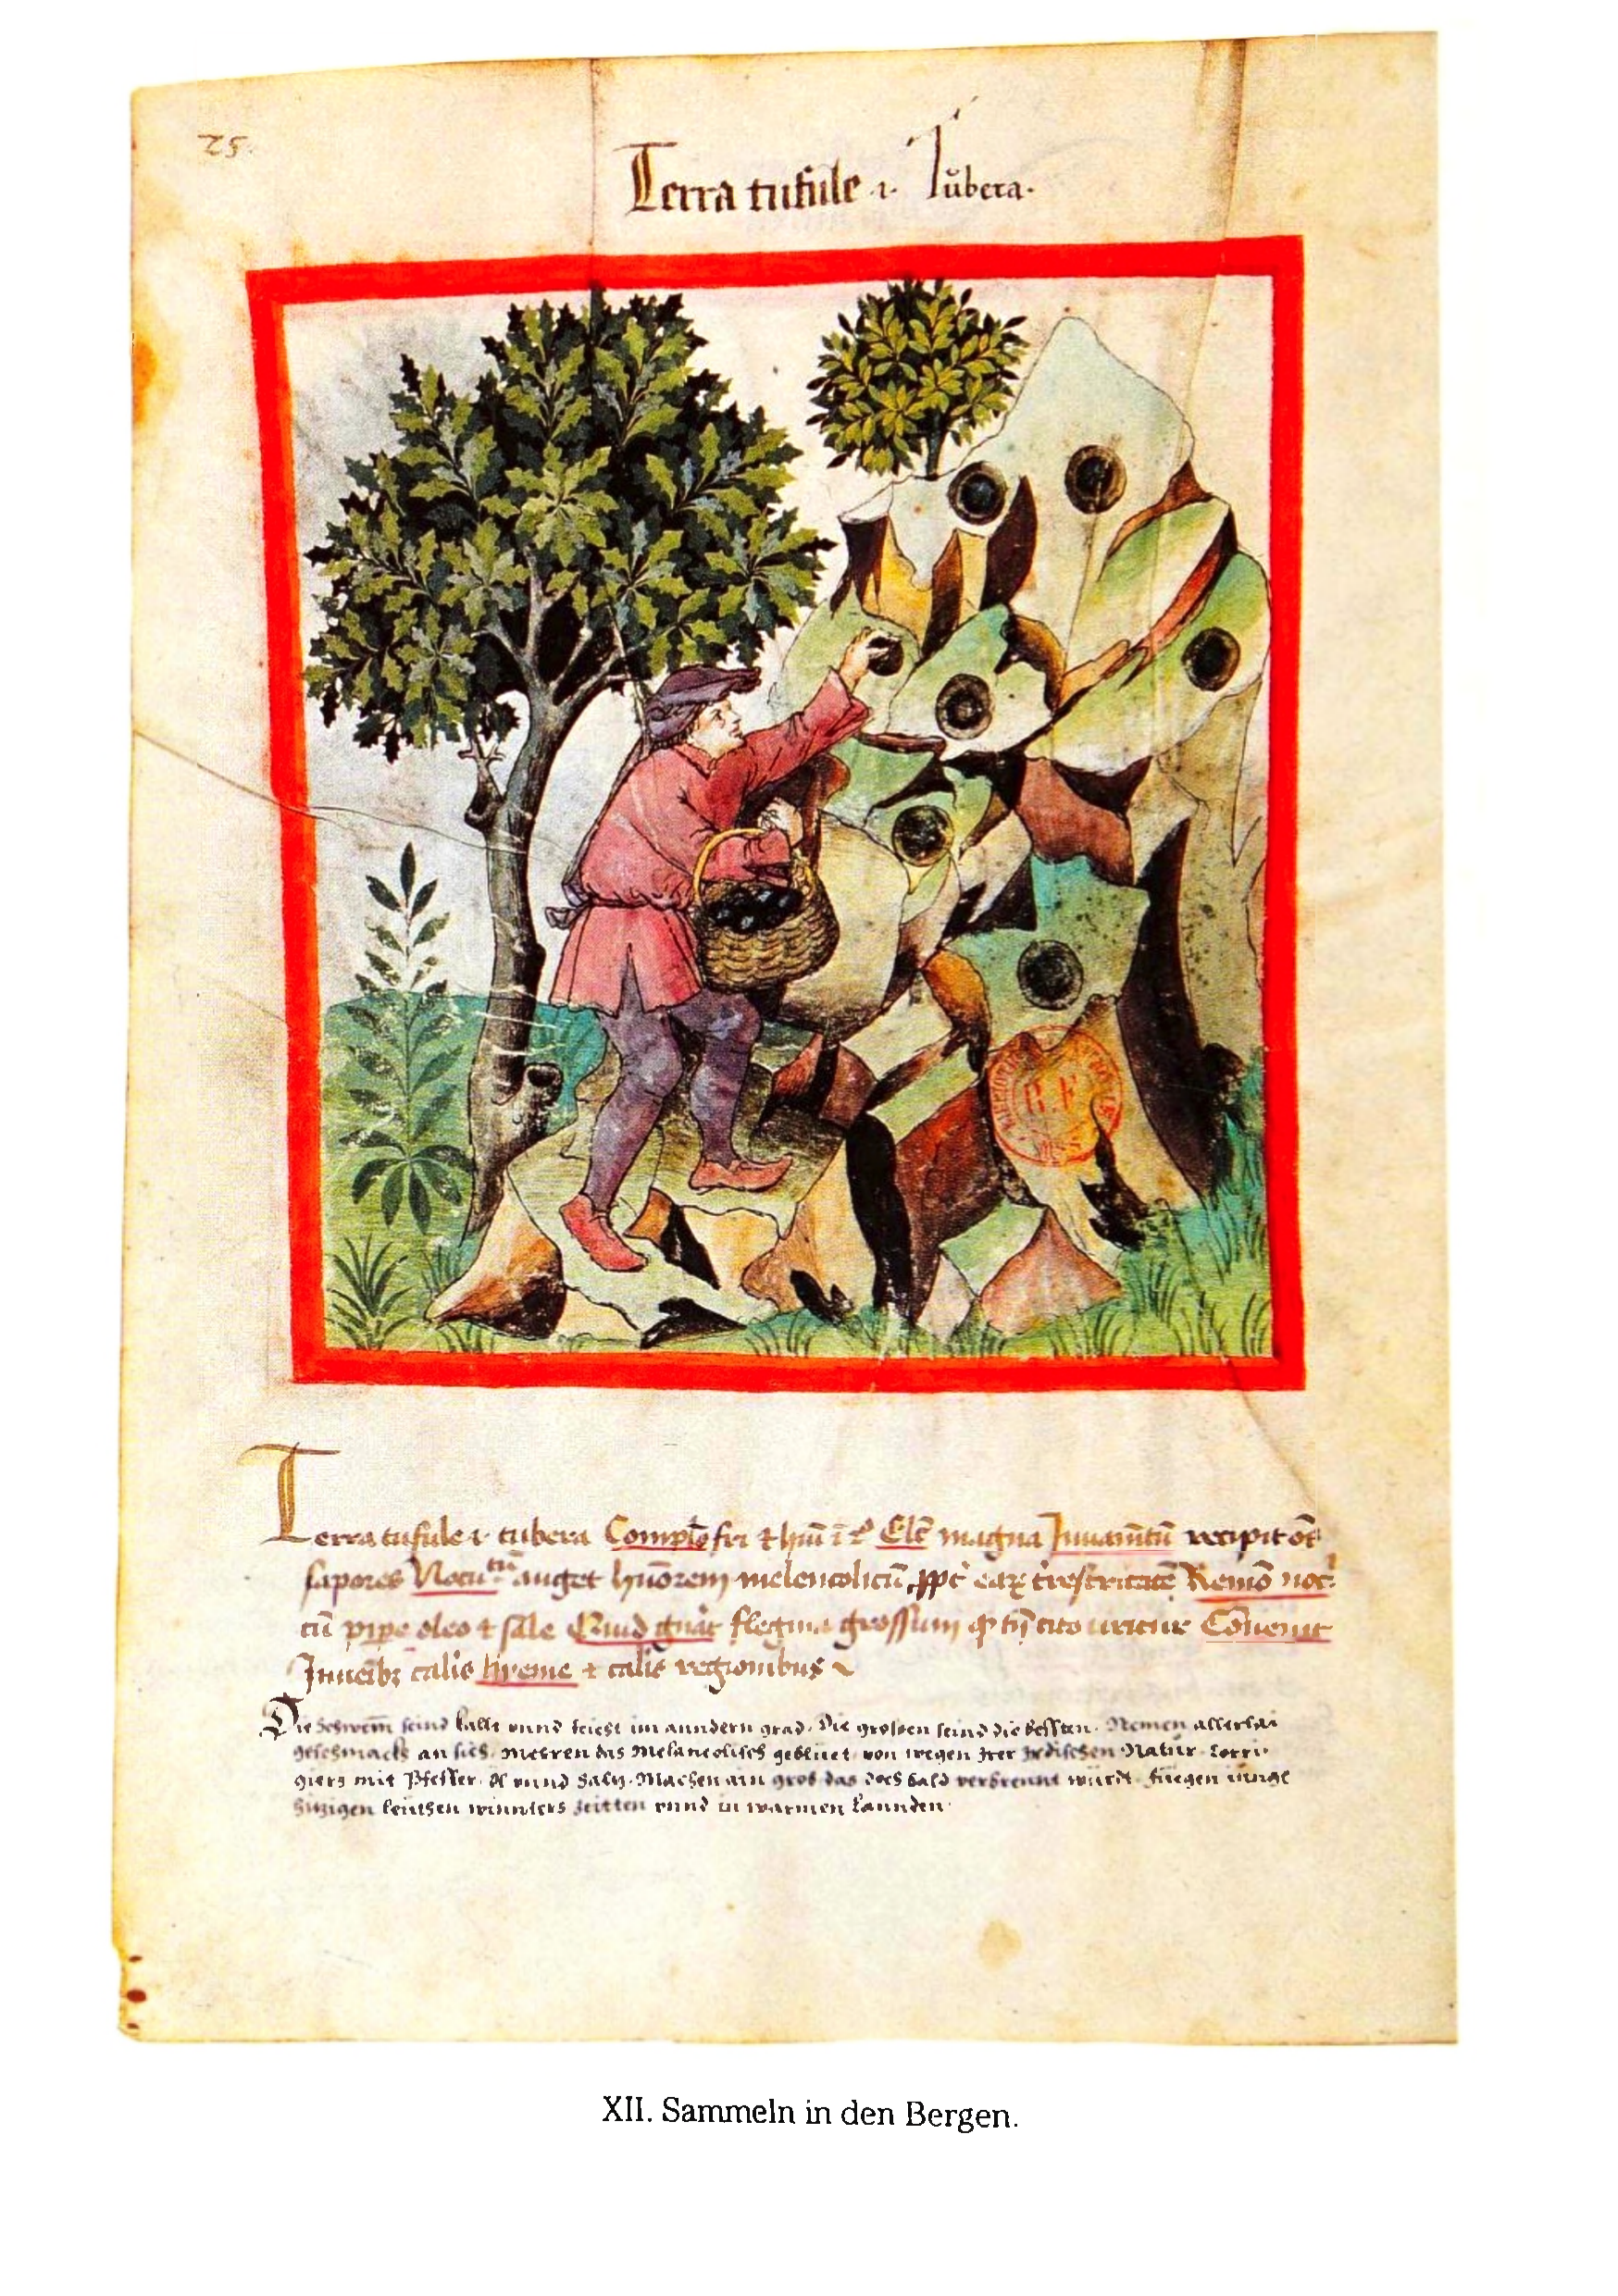 25.
Terra tufule .i. Tubera.
Terra tufule .i. tubera Complo fri. et hui i 2° Elc magna Juuamtu recipit oes
sapores Nocu tu auget huorem melencolicu ppt eaz trestritate Remo noc.
cu pipe oleo et sale Quid gnat flegma grossum cito Conenit
calis hyeme et calis regionibus
Die Schwem seind kallt vnnd feicht im anndern grad. Die grossen seind die bessten. Nemen allerlai
geschmack an sich. Meren das Melancolisch gebluet von wegen Irer Irdischen Natur. Corri
giers mit Pfeffer. Öl vnnd Saltz. Machen ain grob das doch bald verbrennt wurdt. fuegen
hitzigen leuthen winnters zeitten vnnd in warmen Lannden.
B.F
MSS
XII. Sammeln in den Bergen.